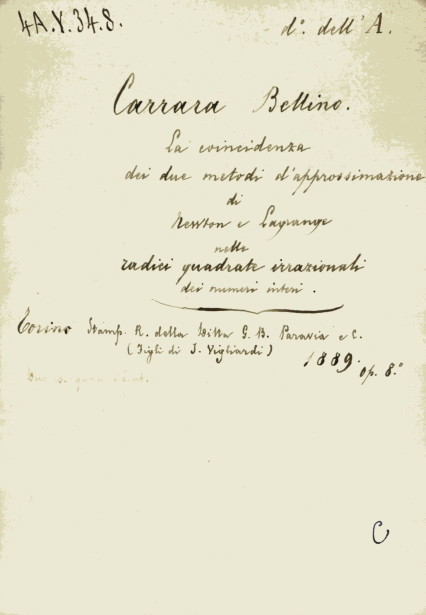 4A.Y.34.8.
d°. dell'A.
Carrara Bellino.
La coincidenza
dei due metodi d'approssimazione
di
Newton e Lagrange
nelle
radici quadrate irrazionali
dei numeri interi.
Torino Stamp. R. della Ditta G. B. Paravia e C.
(Figli di I. Vigliardi)
1889. op. 8.°
C